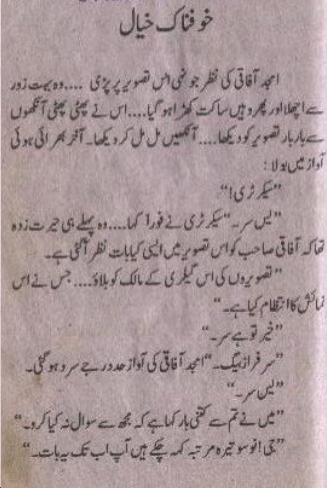 خوفناک خیال
امجد آفاقی کی نظر جونہی اس تصویر پر پڑی .... وہ بہت زور
سے اچھلا اور پھر وہیں ساکت کھڑا ہو گیا.... اس نے پھٹی پھٹی آنکھوں
سے بار بار تصویر کو دیکھا.... آنکھیں مل مل کر دیکھا۔ آخر بھرائی ہوئی
آواز میں بولا :
”سیکرٹری!“
”یس سر۔“ سیکرٹری نے فوراً کہا.... وہ پہلے ہی حیرت زدہ
تھا کہ آفاقی صاحب کو اس تصویر میں ایسی کیا بات نظر آ گئی ہے۔
”تصویروں کی اس گیلری کے مالک کو بلاؤ.... جس نے اس
نمائش کا انتظام کیا ہے۔“
”خیر تو ہے سر۔“
”سرفراز بیگ۔“ امجد آفاقی کی آواز حد درجے سرد ہو گئی۔
”یس سر۔“
”میں نے تم سے کتنی بار کہا ہے کہ مجھ سے سوال نہ کیا کرو۔“
”جی! نو سو تیرہ مرتبہ کہہ چکے ہیں آپ اب تک یہ بات۔“